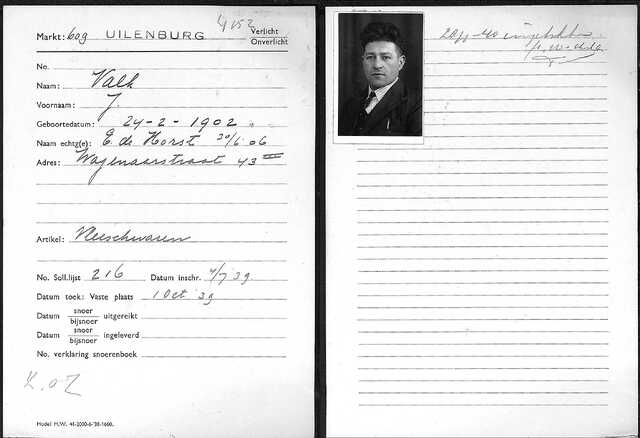 Markt: 609 UILENBURG Verlicht
Onverlicht
No.
Naam: Valk
Voornaam: J
Geboortedatum: 24-2-1902
Naam echtg(e): E de Horst 30/6 06
Adres: Wagenaarstraat 43 III
Artikel: Vleeschwaren
No. Soll.lijst 216 Datum inschr. 4/7 39.
Datum toek: Vaste plaats 1 Oct 39
Datum snoer
bijsnoer uitgereikt
Datum snoer
bijsnoer ingeleverd
No. verklaring snoerenboek
Model M.W. 41-2000-6-'38-1660.